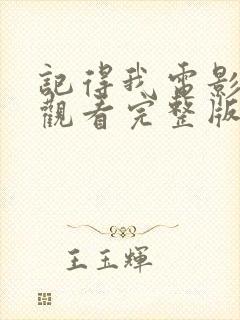 記得我電影
觀看完整版
王玉輝